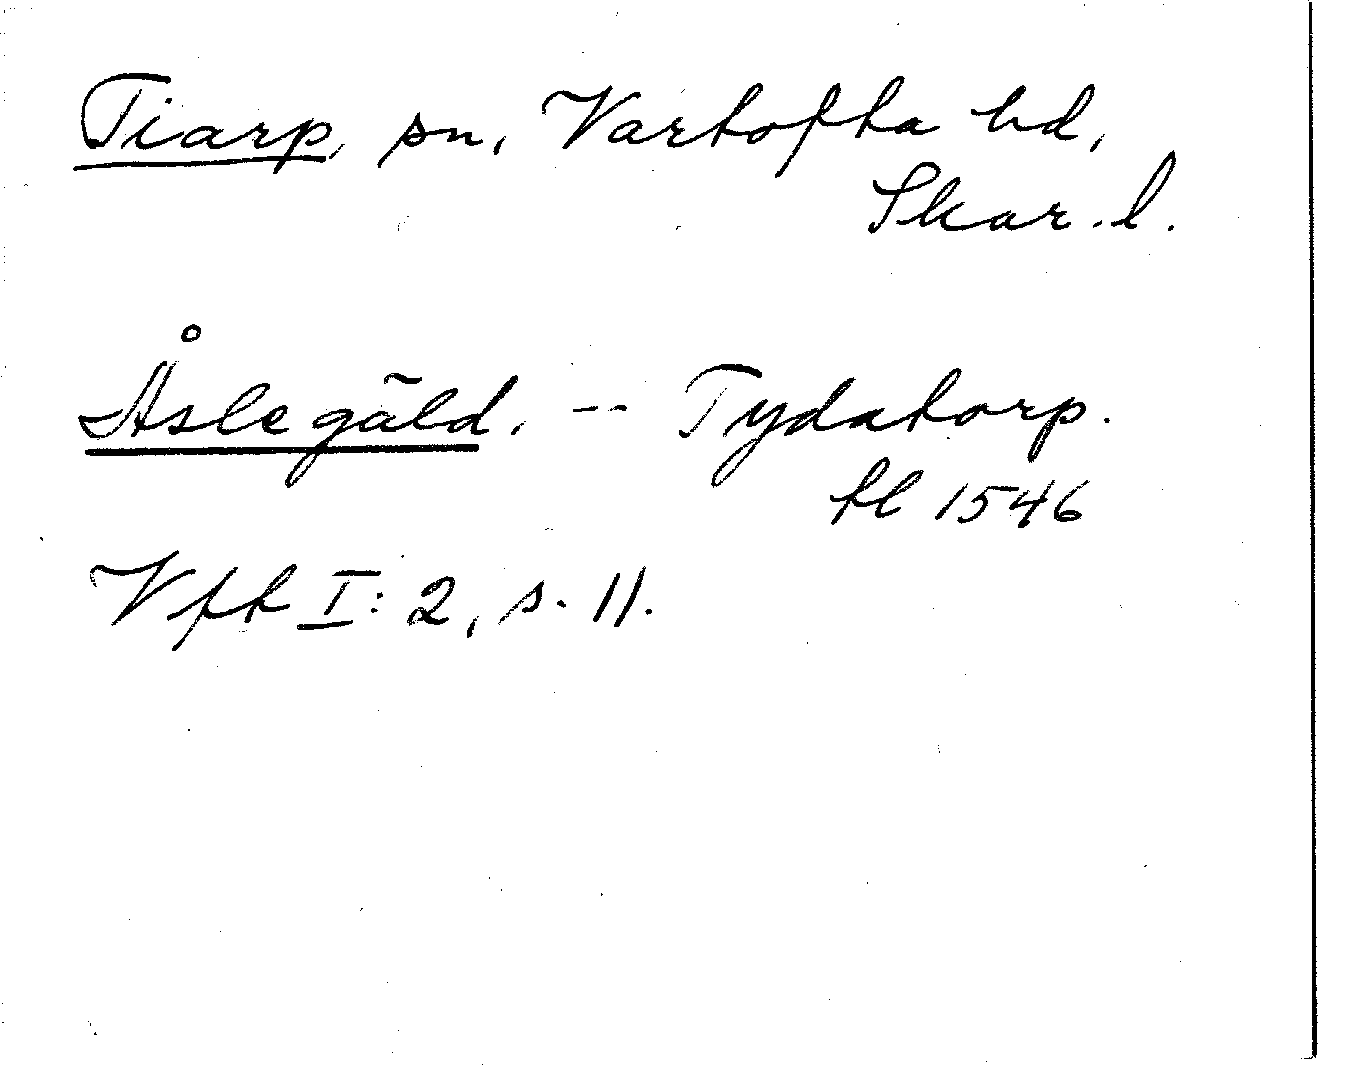 Tiarp, sn, Vartofta hd,
Skar. l.
Åsle gäld, -- Tydatorp.
tl 1546
Vft I: 2, s. 11.